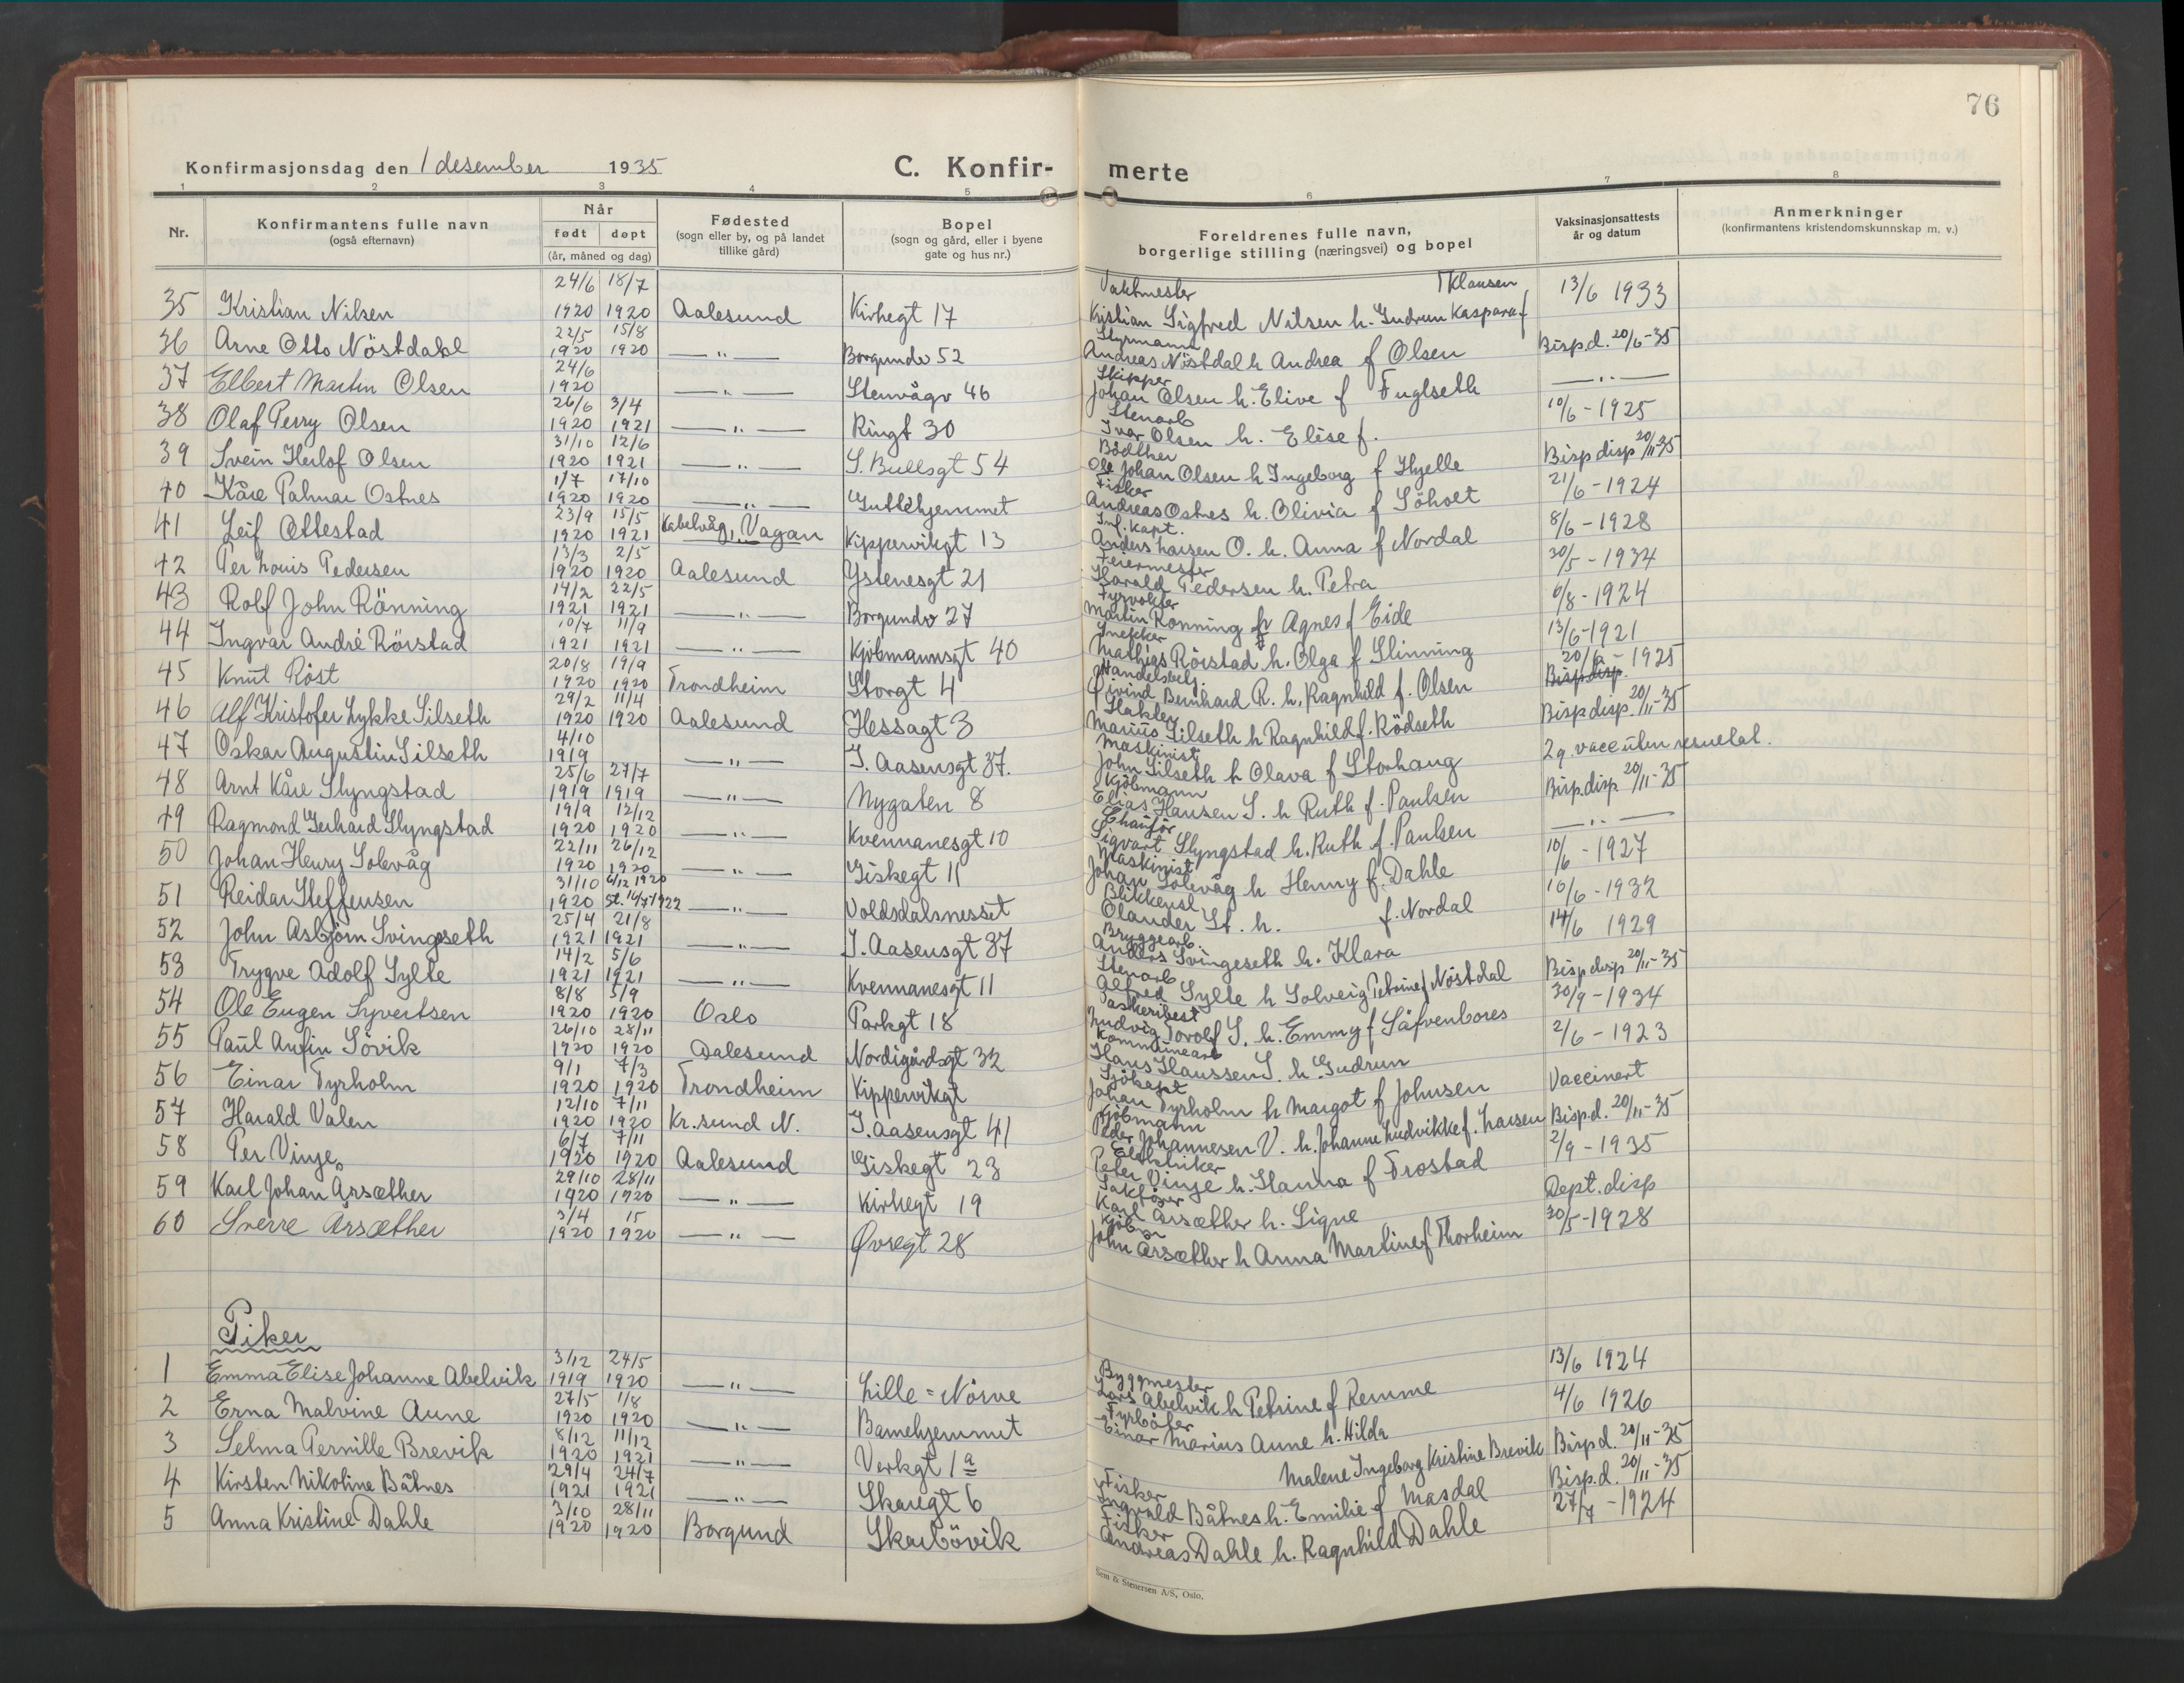 76
Konfirmasjonsdag den 1 desember 1935 C. Konfir- merte
1 2 3 4 5 6 7 8
Nr. Konfirmantens fulle navn (også efternavn) Når født døpt (år, måned og dag) Fødested (sogn eller by, og på landet tillike gård) Bopel (sogn og gård, eller i byene gate og hus nr.) Foreldrenes fulle navn, borgerlige stilling (næringsvei) og bopel Vaksinasjonsattests år og datum Anmerkninger (konfirmantens kristendomskunnskap m. v.)
35 Kristian Nilsen 24/6 1920 18/7 1920 Aalesund Kirkegt 17 Vaktmester Kristian Sigfred Nilsen h. Gudrun Kaspara f Klausen 13/6 1933
36 Arne Otto Nöstdahl 22/5 1920 15/8 1920 —"— Borgundv 52 Styrmann Andreas Nöstdal h Andrea f Olsen Bisp.d. 20/6-35
37 Elbert Martin Olsen 24/6 1920 —"— Stenvågv 46 Skipper Johan Olsen h. Elive f Fuglseth —"—
38 Olaf Perry Olsen 26/6 1920 3/4 1921 —"— Ringt 30 Stenarb Ivar Olsen h. Elise f. 10/6-1925
39 Svein Herlof Olsen 31/10 1920 12/6 1921 —"— S. Bullsgt 54 Bödker Ole Johan Olsen h Ingeborg f Hjelle Bisp disp 20/11-35
40 Kåre Palmar Ostnes 1/7 1920 17/10 1920 —"— Guttehjemmet Fisker Andreas Ostnes h. Olivia f Söholt 21/6-1924
41 Leif Ottestad 23/9 1920 15/5 1921 Kabelvåg, Vagan Kippervikgt 13 Inf. kapt. Anders Larsen O. h. Anna f Nordal 8/6-1928
42 Per Louis Pedersen 13/3 1920 2/5 1920 Aalesund Ystenesgt 21 Feiermester Harald Pedersen h. Petra 30/5-1934
43 Rolf John Rönning 14/2 1921 22/5 1921 —"— Borgundv 27 Fyrvokter Martin Ronning h Agnes f Eide 6/8-1924
44 Ingvar André Rörstad 10/7 1921 11/9 1921 —"— Kjöbmannsgt 40 Snekker Mathias Rörstad h. Olga f Slinning 13/6-1921
45 Knut Röst 20/8 1920 19/9 1920 Trondheim Storgt 4 Handelsbetj. Øivind Bernhard R. h. Ragnhild f. Olsen 20/6-1925 Bisp disp.
46 Alf Kristofer Lykke Silseth 29/2 1920 11/4 1920 Aalesund Hessagt 3 Marius Silseth h Ragnhild f. Rödseth Bisp disp. 20/11-35
47 Oskar Augustin Silseth 4/10 1919 —"— I. Aasensgt 37. Maskinist John Silseth h Olava f Storhaug 2 g. vacc uten resueltat.
48 Arnt Kåre Slyngstad 25/6 1919 27/7 1919 —"— Nygaten 8 Kjöbmann Elias Hansen S. h Ruth f. Paulsen Bisp. disp 20/11-35
49 Ragmond Gerhard Slyngstad 19/9 1920 12/12 1920 —"— Kvennanesgt 10 Chauför Sigvart Slyngstad h. Ruth f. Paulsen —"—
50 Johan Henry Solevåg 22/11 1920 26/12 1920 —"— Giskegt 11 Maskinist Johan Solevåg h Henny f. Dahle 10/6-1927
51 Reidar Steffensen 31/10 1920 6/12 1920 St. 16/7 1922 —"— Voldsdalsnesset Blikkensl Olander St. h. f. Nordal 16/6-1932
52 John Asbjörn Svingseth 25/4 1921 21/8 1921 —"— I. Aasensgt 37 Bryggearb. Anders Svingeseth h. Klara 14/6 1929
53 Trygve Adolf Sylte 14/2 1921 5/6 1921 —"— Kvennanesgt 11 Stenarb Alfred Sylte h Solveig Petrine f Nöstdal Bisp disp 20/11-35
54 Ole Eugen Syvertsen 8/8 1920 5/9 1920 Oslo Parkgt 18 Ludvig Torolf S. h. Emmy f Säfvenbores 30/9-1934
55 Paul Anfin Sövik 26/10 1920 28/11 1920 Aalesund Nordigårdsgt 32 Kommunearb Hans Hanssen S. h Gudrun 2/6-1923
56 Einar Tyrholm 9/1 1920 7/3 1920 Trondheim Kippervikgt Sjökapt Johan Tyrholm h Margot f Johnsen Vaccinert
57 Harald Valen 12/10 1920 7/11 1920 Kr.sund N. I. Aasensgt 41 Kjöbmann Peder Johannesen V. h. Johanne Ludvikke f. Larsen Bisp.d. 20/11-35
58 Per Vinje 6/7 1920 7/11 1920 Aalesund Giskegt 23 Elektriker Peter Vinje h. Hanna f Frostad 2/9-1935
59 Karl Johan Årsæther 29/10 1920 28/11 1920 —"— Kirkegt 19 Faktörer Karl Årsæther h. Signe Dept. disp
60 Sverre Årsæther 3/4 1920 15 1920 —"— Øvregt 28 Kjöbm John Årsæther h Anna Martine f Thorheim 30/5-1928
Piker
1 Emma Elise Johanne Abelvik 3/12 1919 24/5 1920 —"— Lille=Nörve Byggmester Lars Abelvik h Petrine f Remme 13/6 1924
2 Erna Malvine Aune 27/5 1920 1/8 1920 —"— Barnehjemmet Fyrböter Einar Marius Aune h. Hilda 4/6 1926
3 Selma Pernille Brevik 8/12 1920 11/12 1921 —"— Verkgt 1a Malene Ingeborg Kristine Brevik Bisp d. 20/11-35
4 Kirsten Nikoline Båtnes 29/4 1921 24/7 1921 —"— Skaregt 6 Fisker Ingvald Båtnes h. Emilie f Masdal Bisp.d. 20/11-35
5 Anna Kristine Dahle 3/10 1920 28/11 1920 Borgund Skarbövik Fisker Andreas Dahle h. Ragnhild Dahle 27/7-1924
Sem & Stenersen A/S, Oslo.